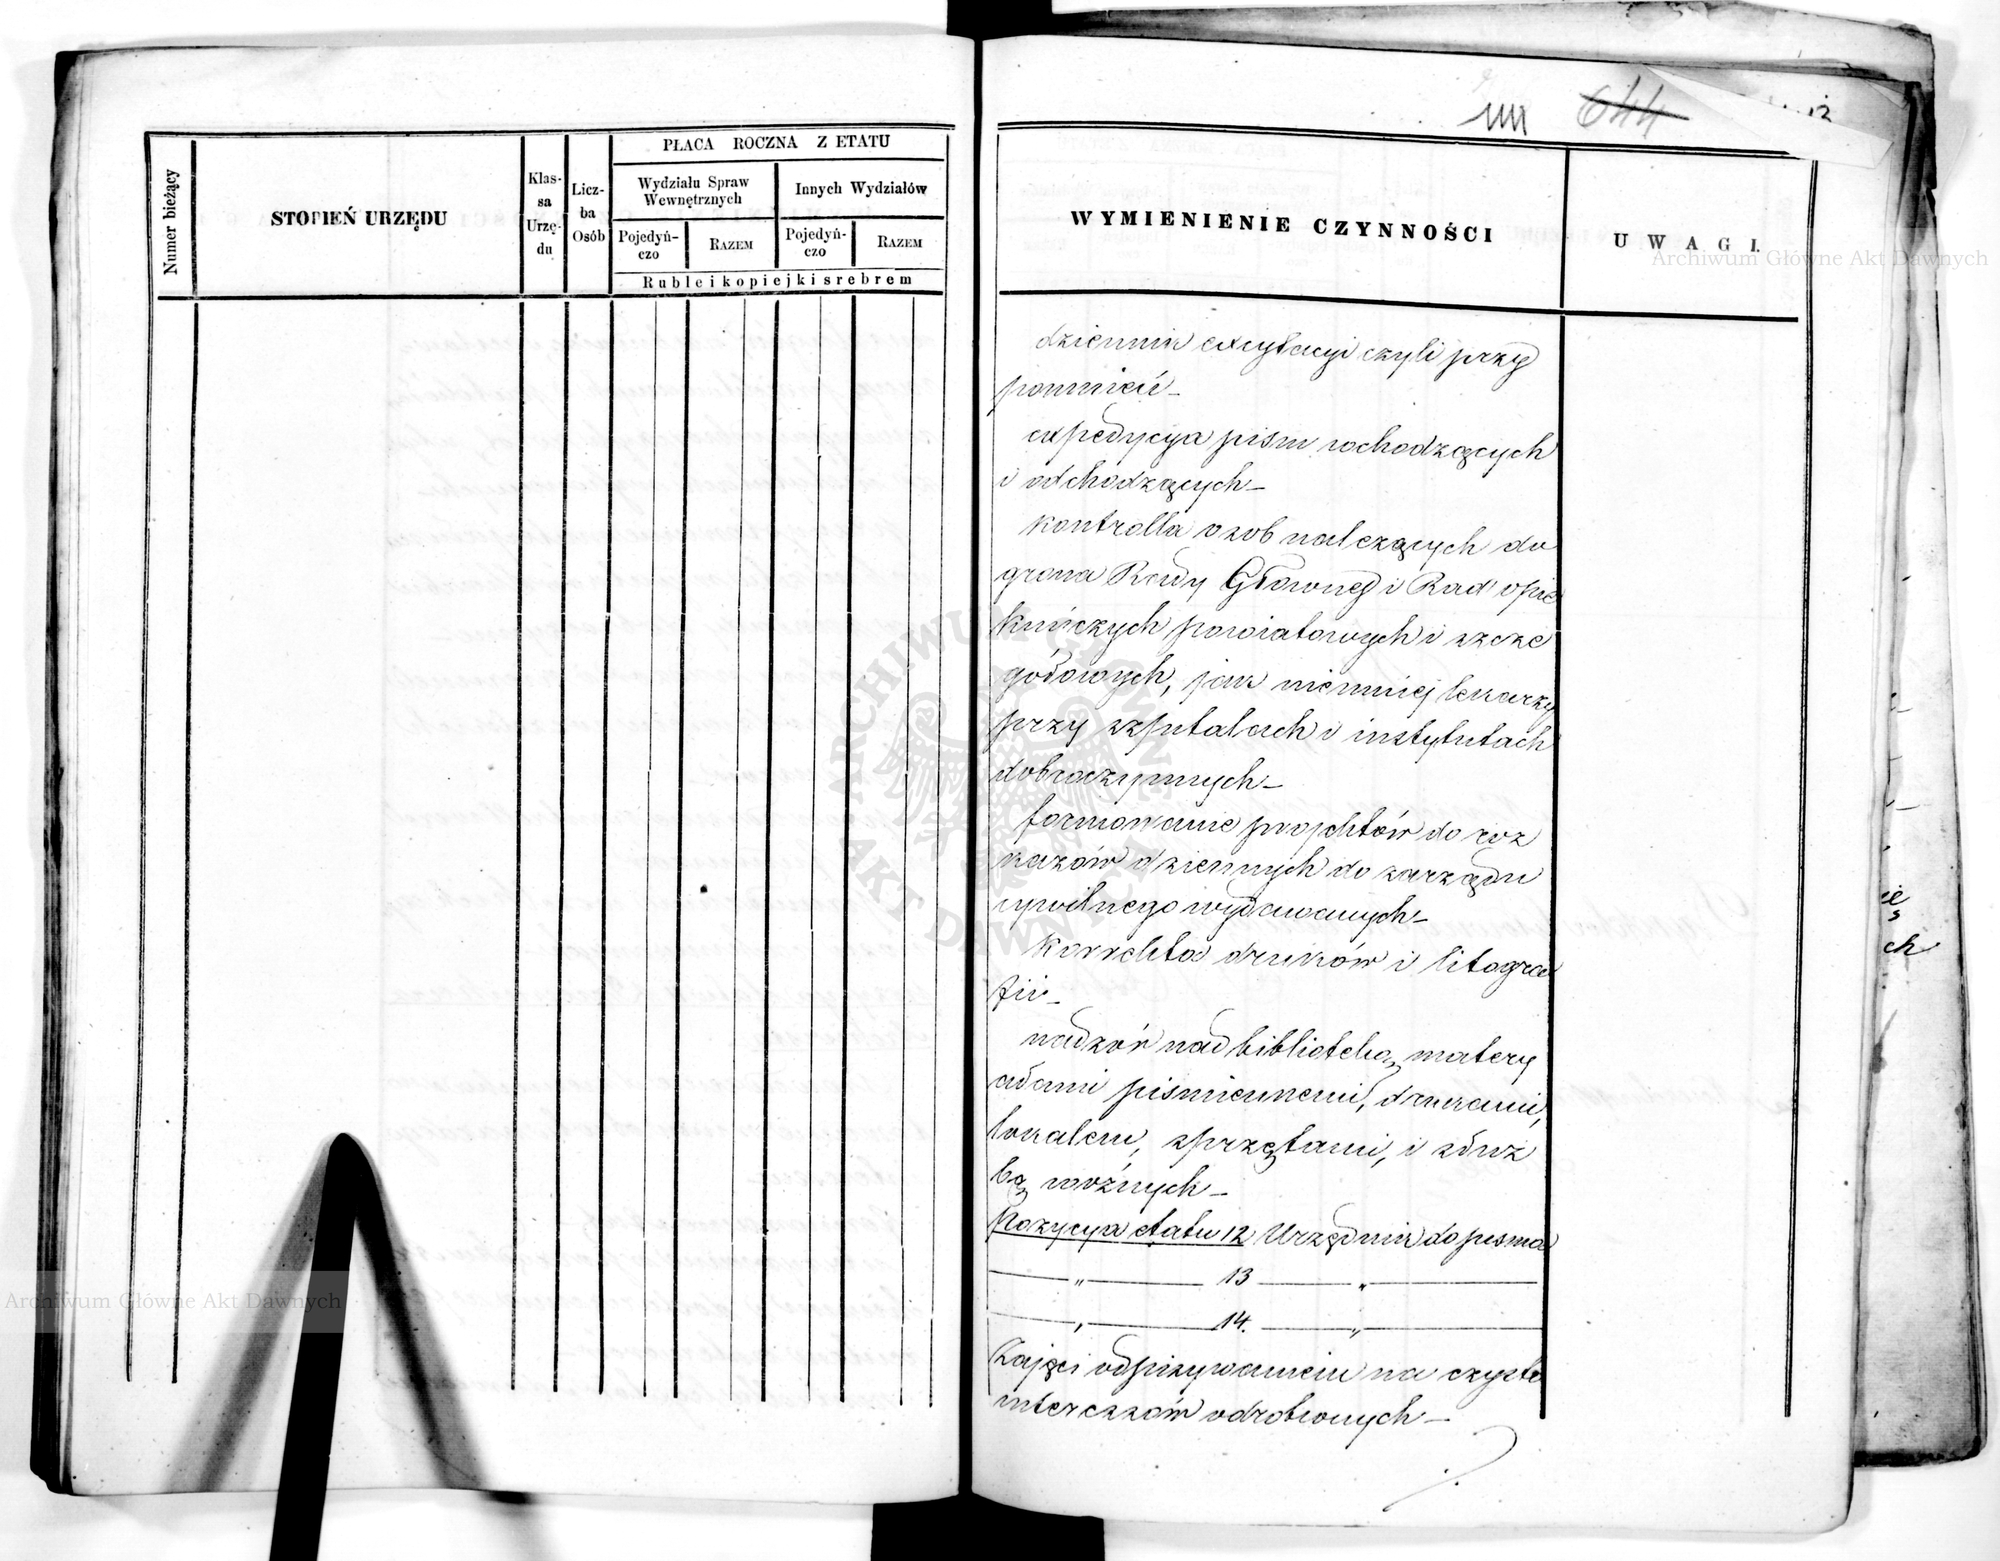 Numer bieżący
STOPIEŃ URZĘDU
Klas-
sa
Urzę-
du
Licz-
ba
Osób
PŁACA ROCZNA Z ETATU
Wydziału Spraw
Wewnętrznych
Innych Wydziałów
Pojedyń-
czo
RAZEM
Pojedyń-
czo
RAZEM
Ruble i kopiejki srebrem
644
WYMIENIENIE CZYNNOŚCI
UWAGI.
dziennik excytacyi czyli przy
pomnień_
expedycya pism wchodzących
i odchodzących_
kontrolla osob należących do
grona Rady Głownej i Rad opie
kuńczych powiatowych i szcze
gółowych, jak niemniej lekarzy
przy szpitalach i instytutach
dobroczynnych_
formowanie projektów do roz
kazów dziennych do zarządu
cywilnego wydawanych_
korrekta druków i litogra
fii_
nadzór nad biblioteką, matery
ałami piśmiennemi, drukami,
lokalem, sprzętami, i służ
bą woźnych_
Pozycya etatu 12 Urzędnik do pisma
— „ — 13 — „ —
— „ — 14. — „ —
Zajęci odpisywaniem na czysto
interessów odrobionych_
ie
ch
Archiwum Główne Akt Dawnych
Archiwum Główne Akt Dawnych
ARCHIWUM GŁÓWNE AKT DAWNYCH